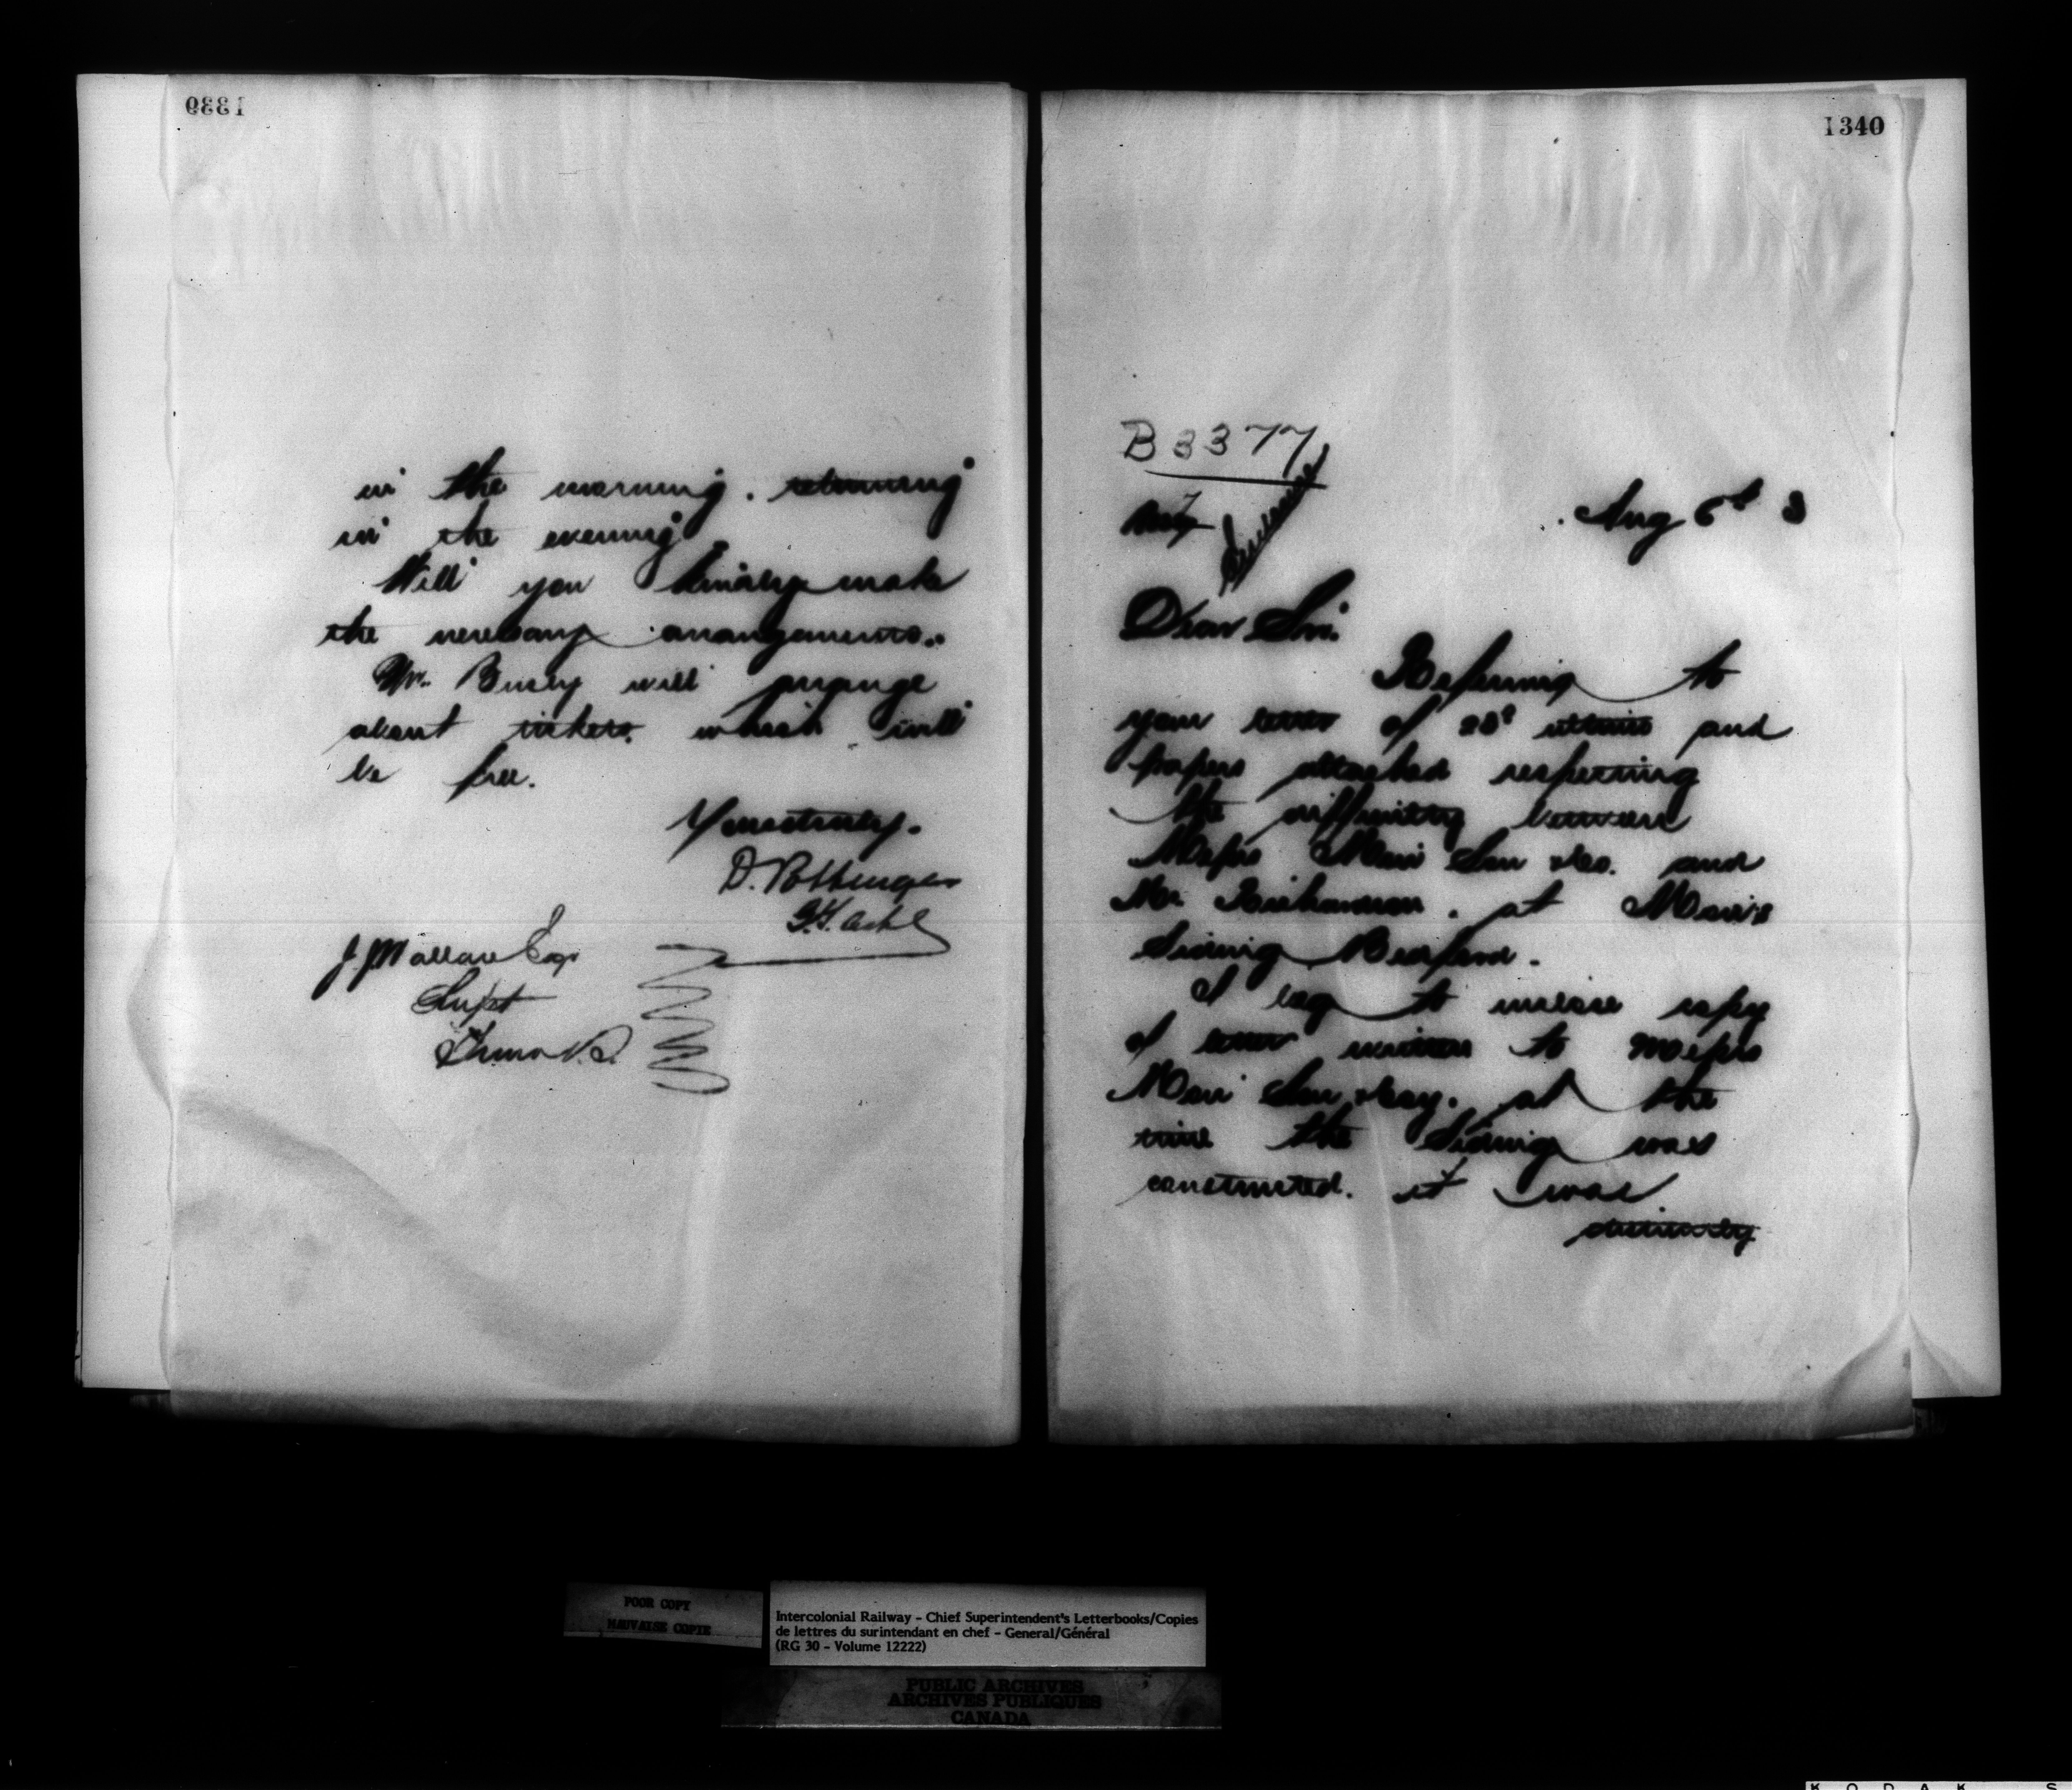 1339
in the morning. returning
in the evening
Will you kindly make
the necessary arrangements.
Mr. Busby will arrange
about tickets. which will
be free.
Yours truly.
D. Pottinger
J. J. Wallace Esqr
Supt
Truro N.S.
1340
B 3377
Aug 6th 3
Dear Sir.
Referring to
your letter of 28th ultimo and
papers attached respecting
the difficulty between
Messrs Moir Son & Co. and
Mr. Richardson. at Moir's
Siding Bedford.
I beg to enclose copy
of letter written to Messrs
Moir Son & Coy. at the
time the Siding was
constructed. it was
distinctly
POOR COPY
MAUVAISE COPIE
Intercolonial Railway - Chief Superintendent's Letterbooks/Copies
de lettres du surintendant en chef - General/Général
(RG 30 - Volume 12222)
PUBLIC ARCHIVES
ARCHIVES PUBLIQUES
CANADA
K O D A K S